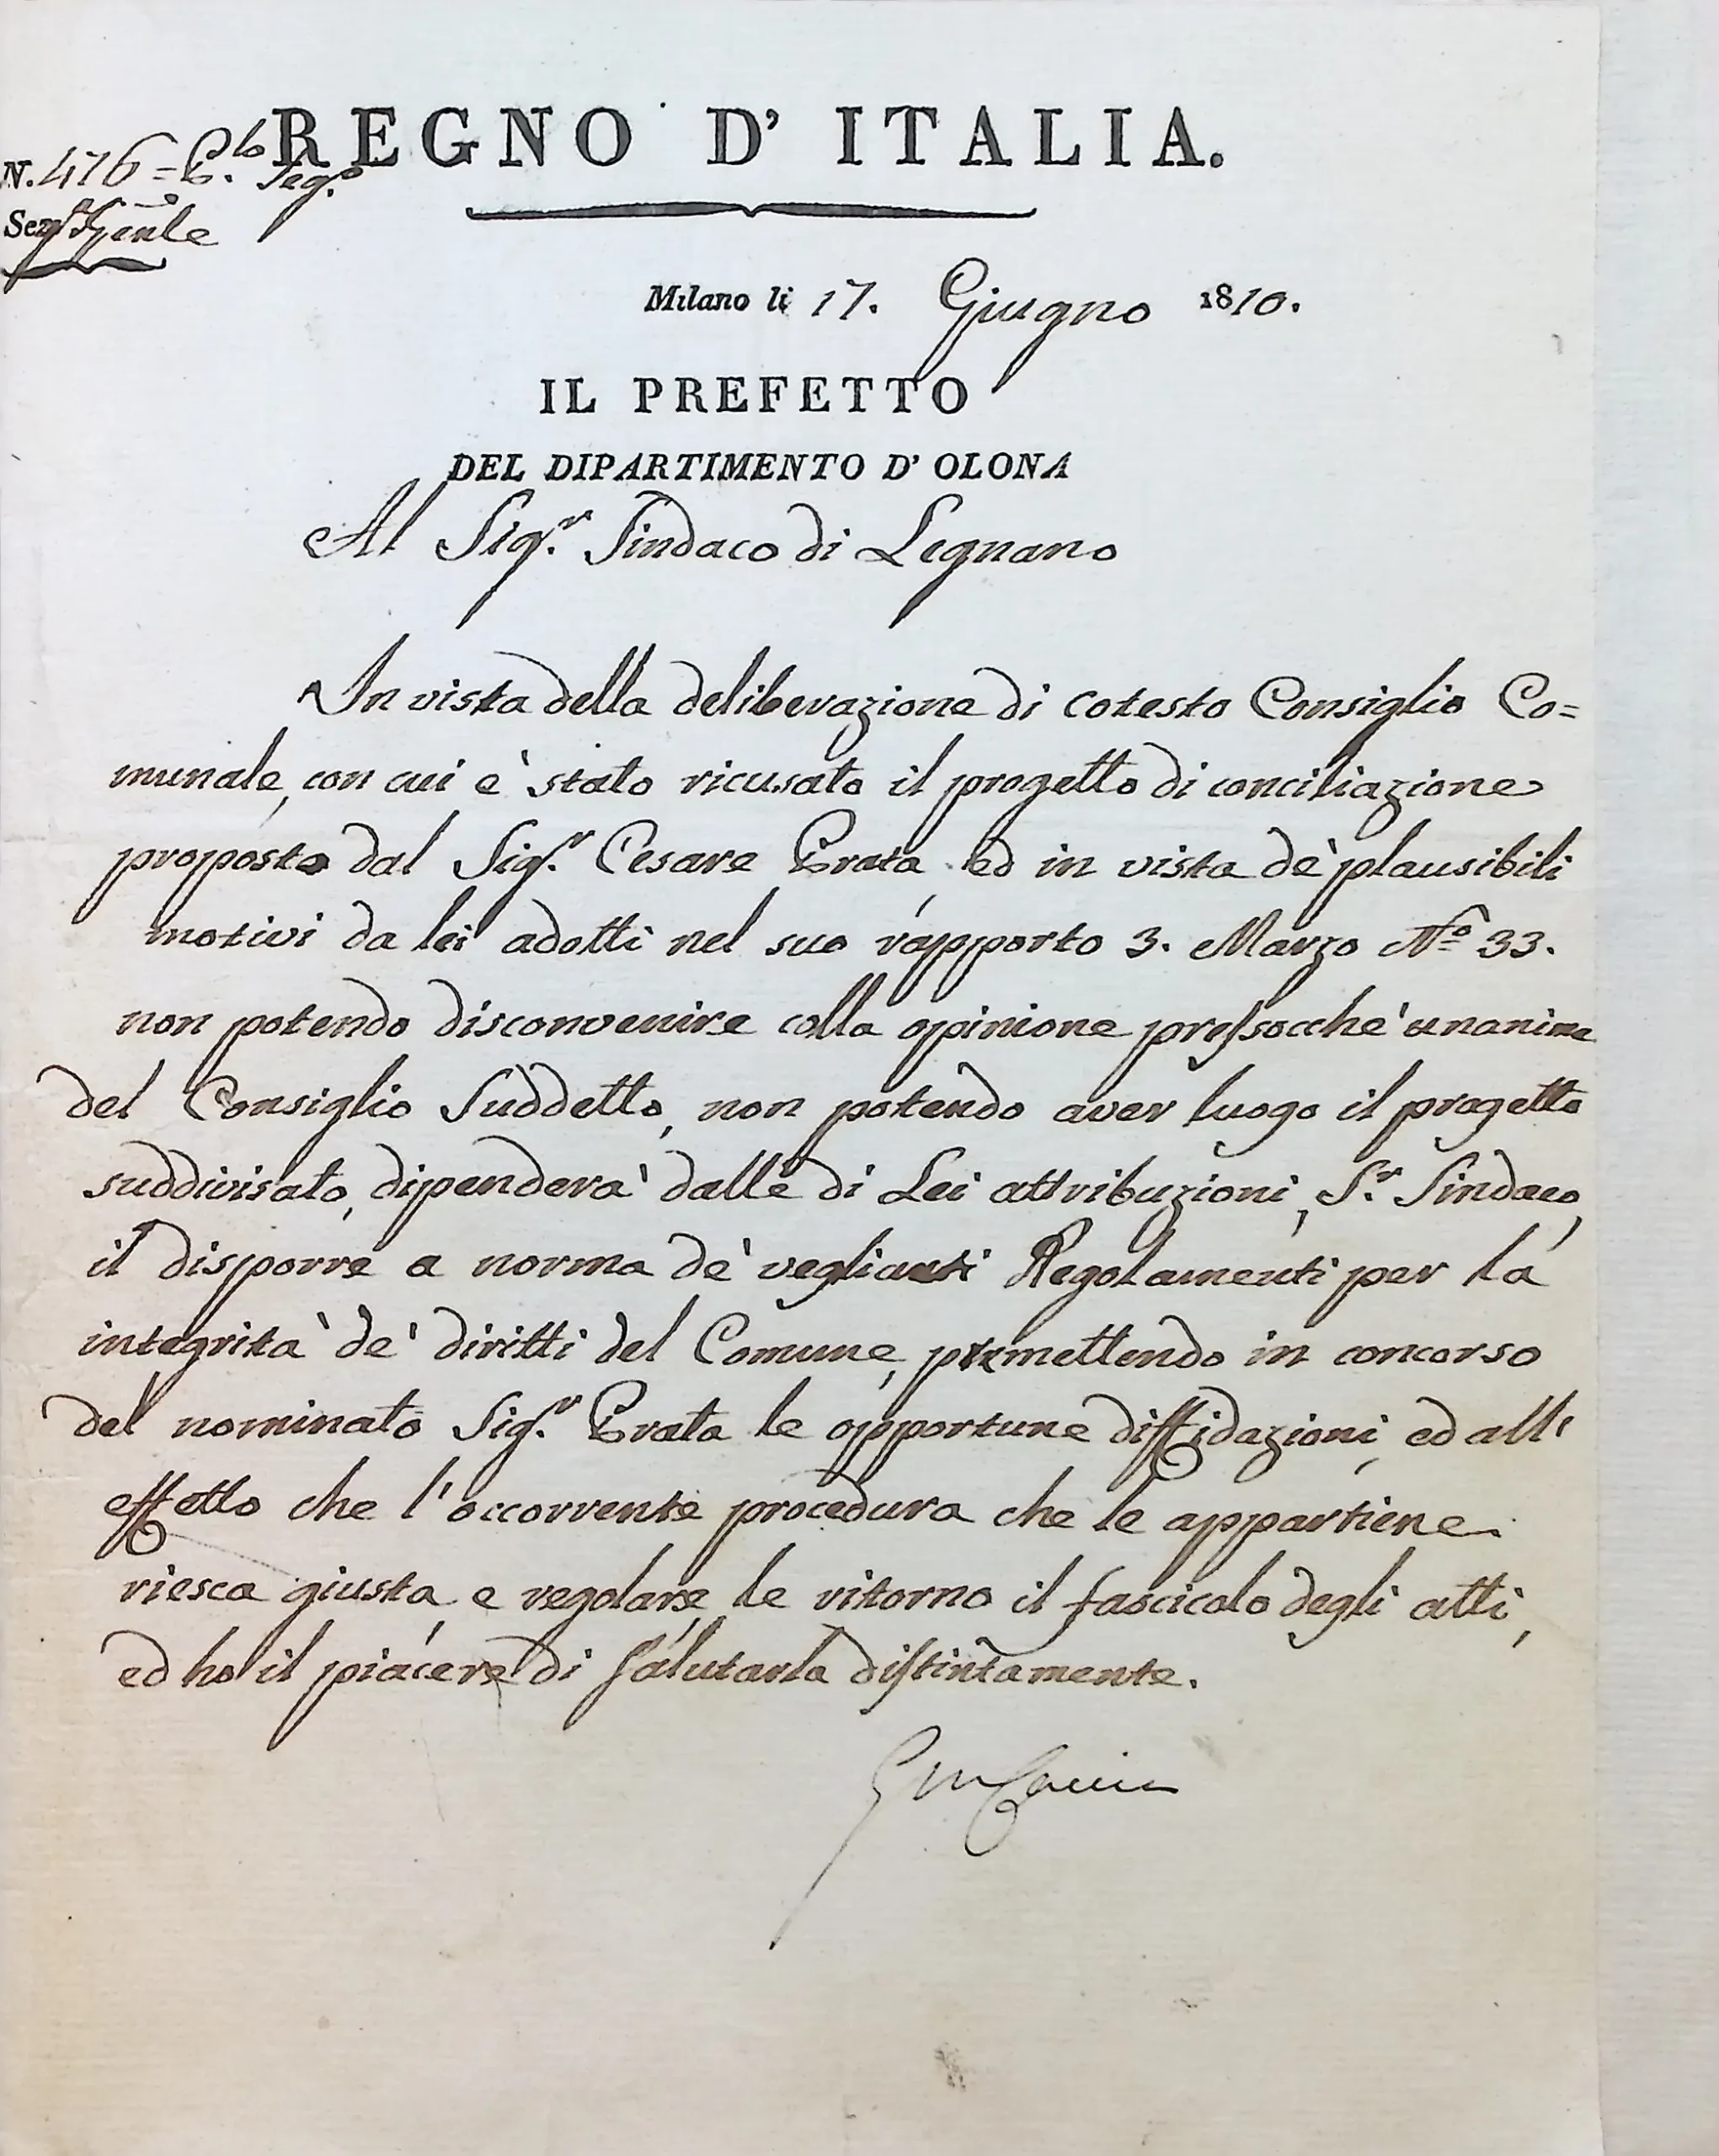 REGNO D' ITALIA.
N. 476 = P.lo Seg.o
Sez.e G̅e̅n̅le
Milano li 17. Giugno 1810.
IL PREFETTO
DEL DIPARTIMENTO D' OLONA
Al Sig.r Sindaco di Legnano
In vista della deliberazione di cotesto Consiglio Co=
munale, con cui è stato ricusato il progetto di conciliazione
proposto dal Sig.r Cesare Prata, ed in vista de' plausibili
motivi da lei adotti nel suo rapporto 3. Marzo N.o 33.
non potendo disconvenire colla opinione pressocchè unanime
del Consiglio Suddetto, non potendo aver luogo il progetto
suddivisato, dipenderà dalle di Lei attribuzioni, S.r Sindaco,
il disporre a norma de' veglianti Regolamenti per la
integrità de' diritti del Comune, premettendo in concorso
del nominato Sig.r Prata le opportune diffidazioni, ed all'
effetto che l'occorrente procedura che le appartiene
riesca giusta, e regolare, le ritorno il fascicolo degli atti,
ed ho il piacere di salutarla distintamente.